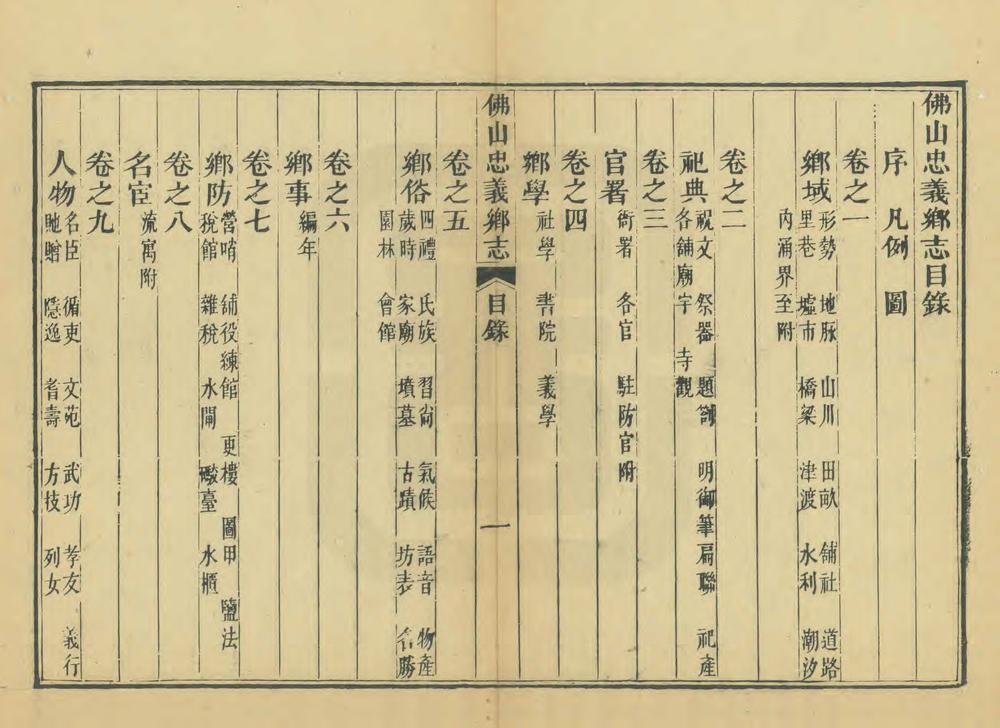 佛山忠義鄉志目錄
序　凡例　圖
卷之一
鄉域　形勢　地脉　山川　田畝　舖社　道路
里巷　墟市　橋梁　津渡　水利　潮汐
內涌界至附
卷之二
祀典　祝文　祭器　題額　明御筆扁聯　祀產
各舖廟宇　寺觀
卷之三
官署　衙署　各官　駐防官附
卷之四
鄉學　社學　書院　義學
佛山忠義鄉志　目錄　一
卷之五
鄉俗　四禮　氏族　習尚　氣候　語音　物產
歲時　家廟　墳墓　古蹟　坊表　名勝
園林　會館
卷之六
鄉事　編年
卷之七
鄉防　營哨　舖役練館　更樓　圖甲　鹽法
稅館　雜稅　水閘　礮臺　水櫃
卷之八
名宦　流寓附
卷之九
人物　名臣　循吏　文苑　武功　孝友　義行
馳贈　隱逸　耆壽　方技　列女